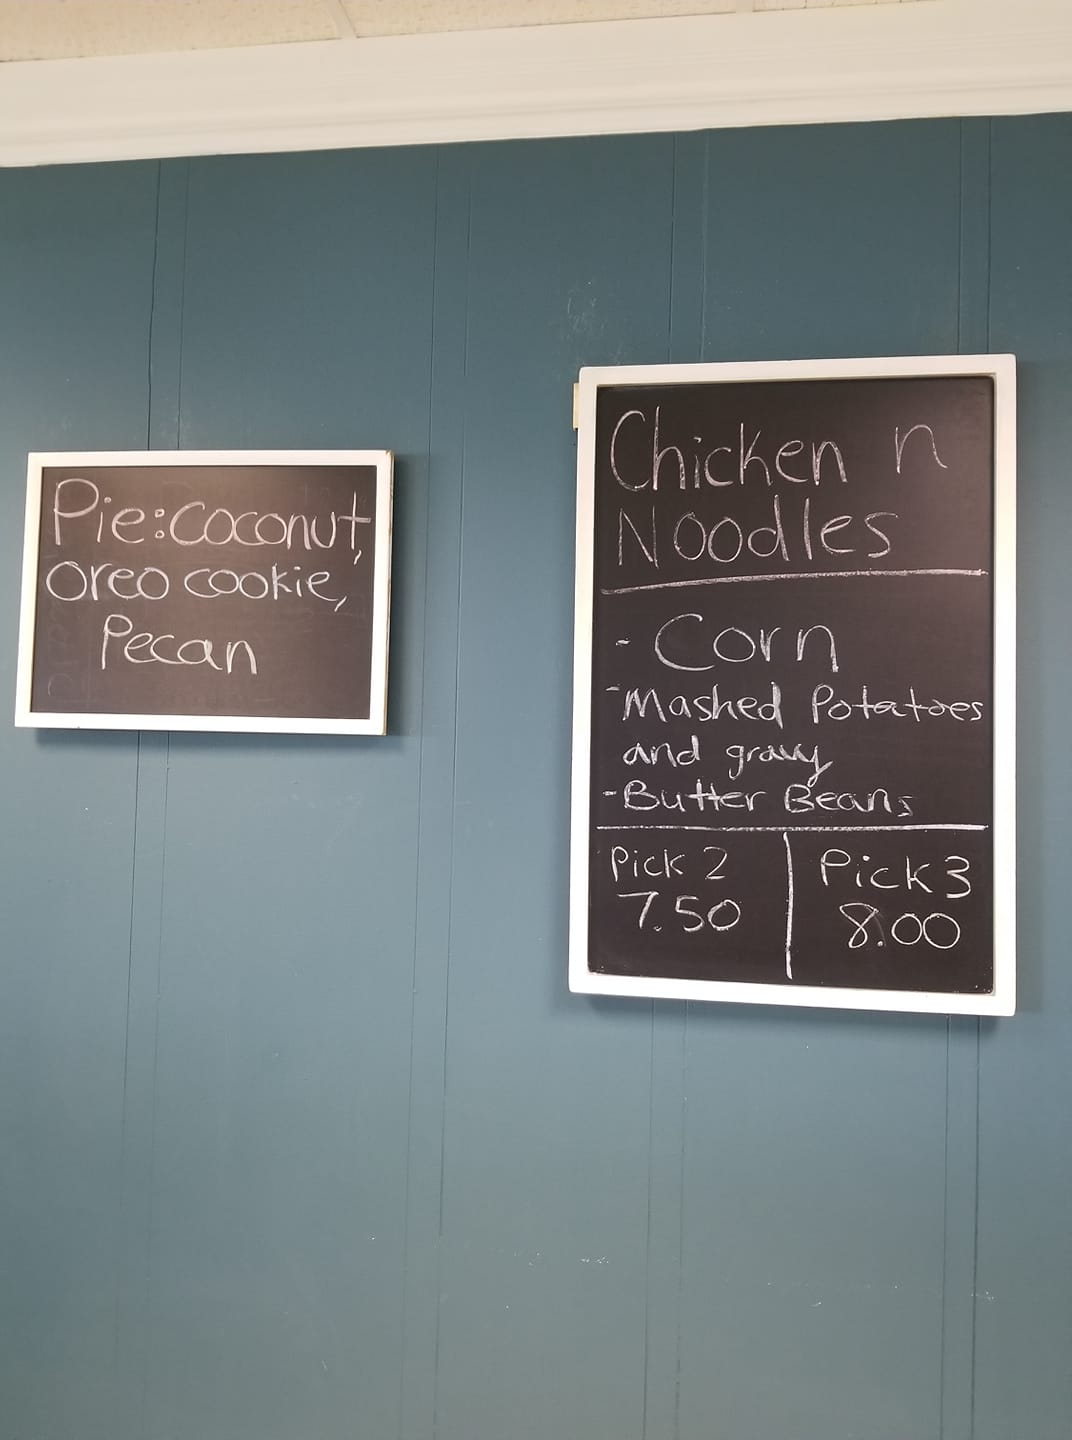 Pie: coconut,
Oreo cookie,
Pecan
Chicken n
Noodles
- Corn
- Mashed Potatoes
and gravy
- Butter Beans
Pick 2
7.50
Pick 3
8.00